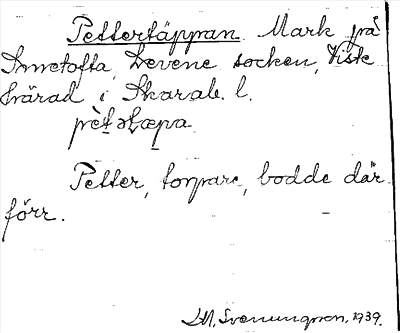 Pettertäppan. Mark på
Smetofta, Levene socken, Viste
härad i Skarab. l.
pètəʈæpa
Petter, torpare, bodde där
förr.
Svenungsson, 1939.